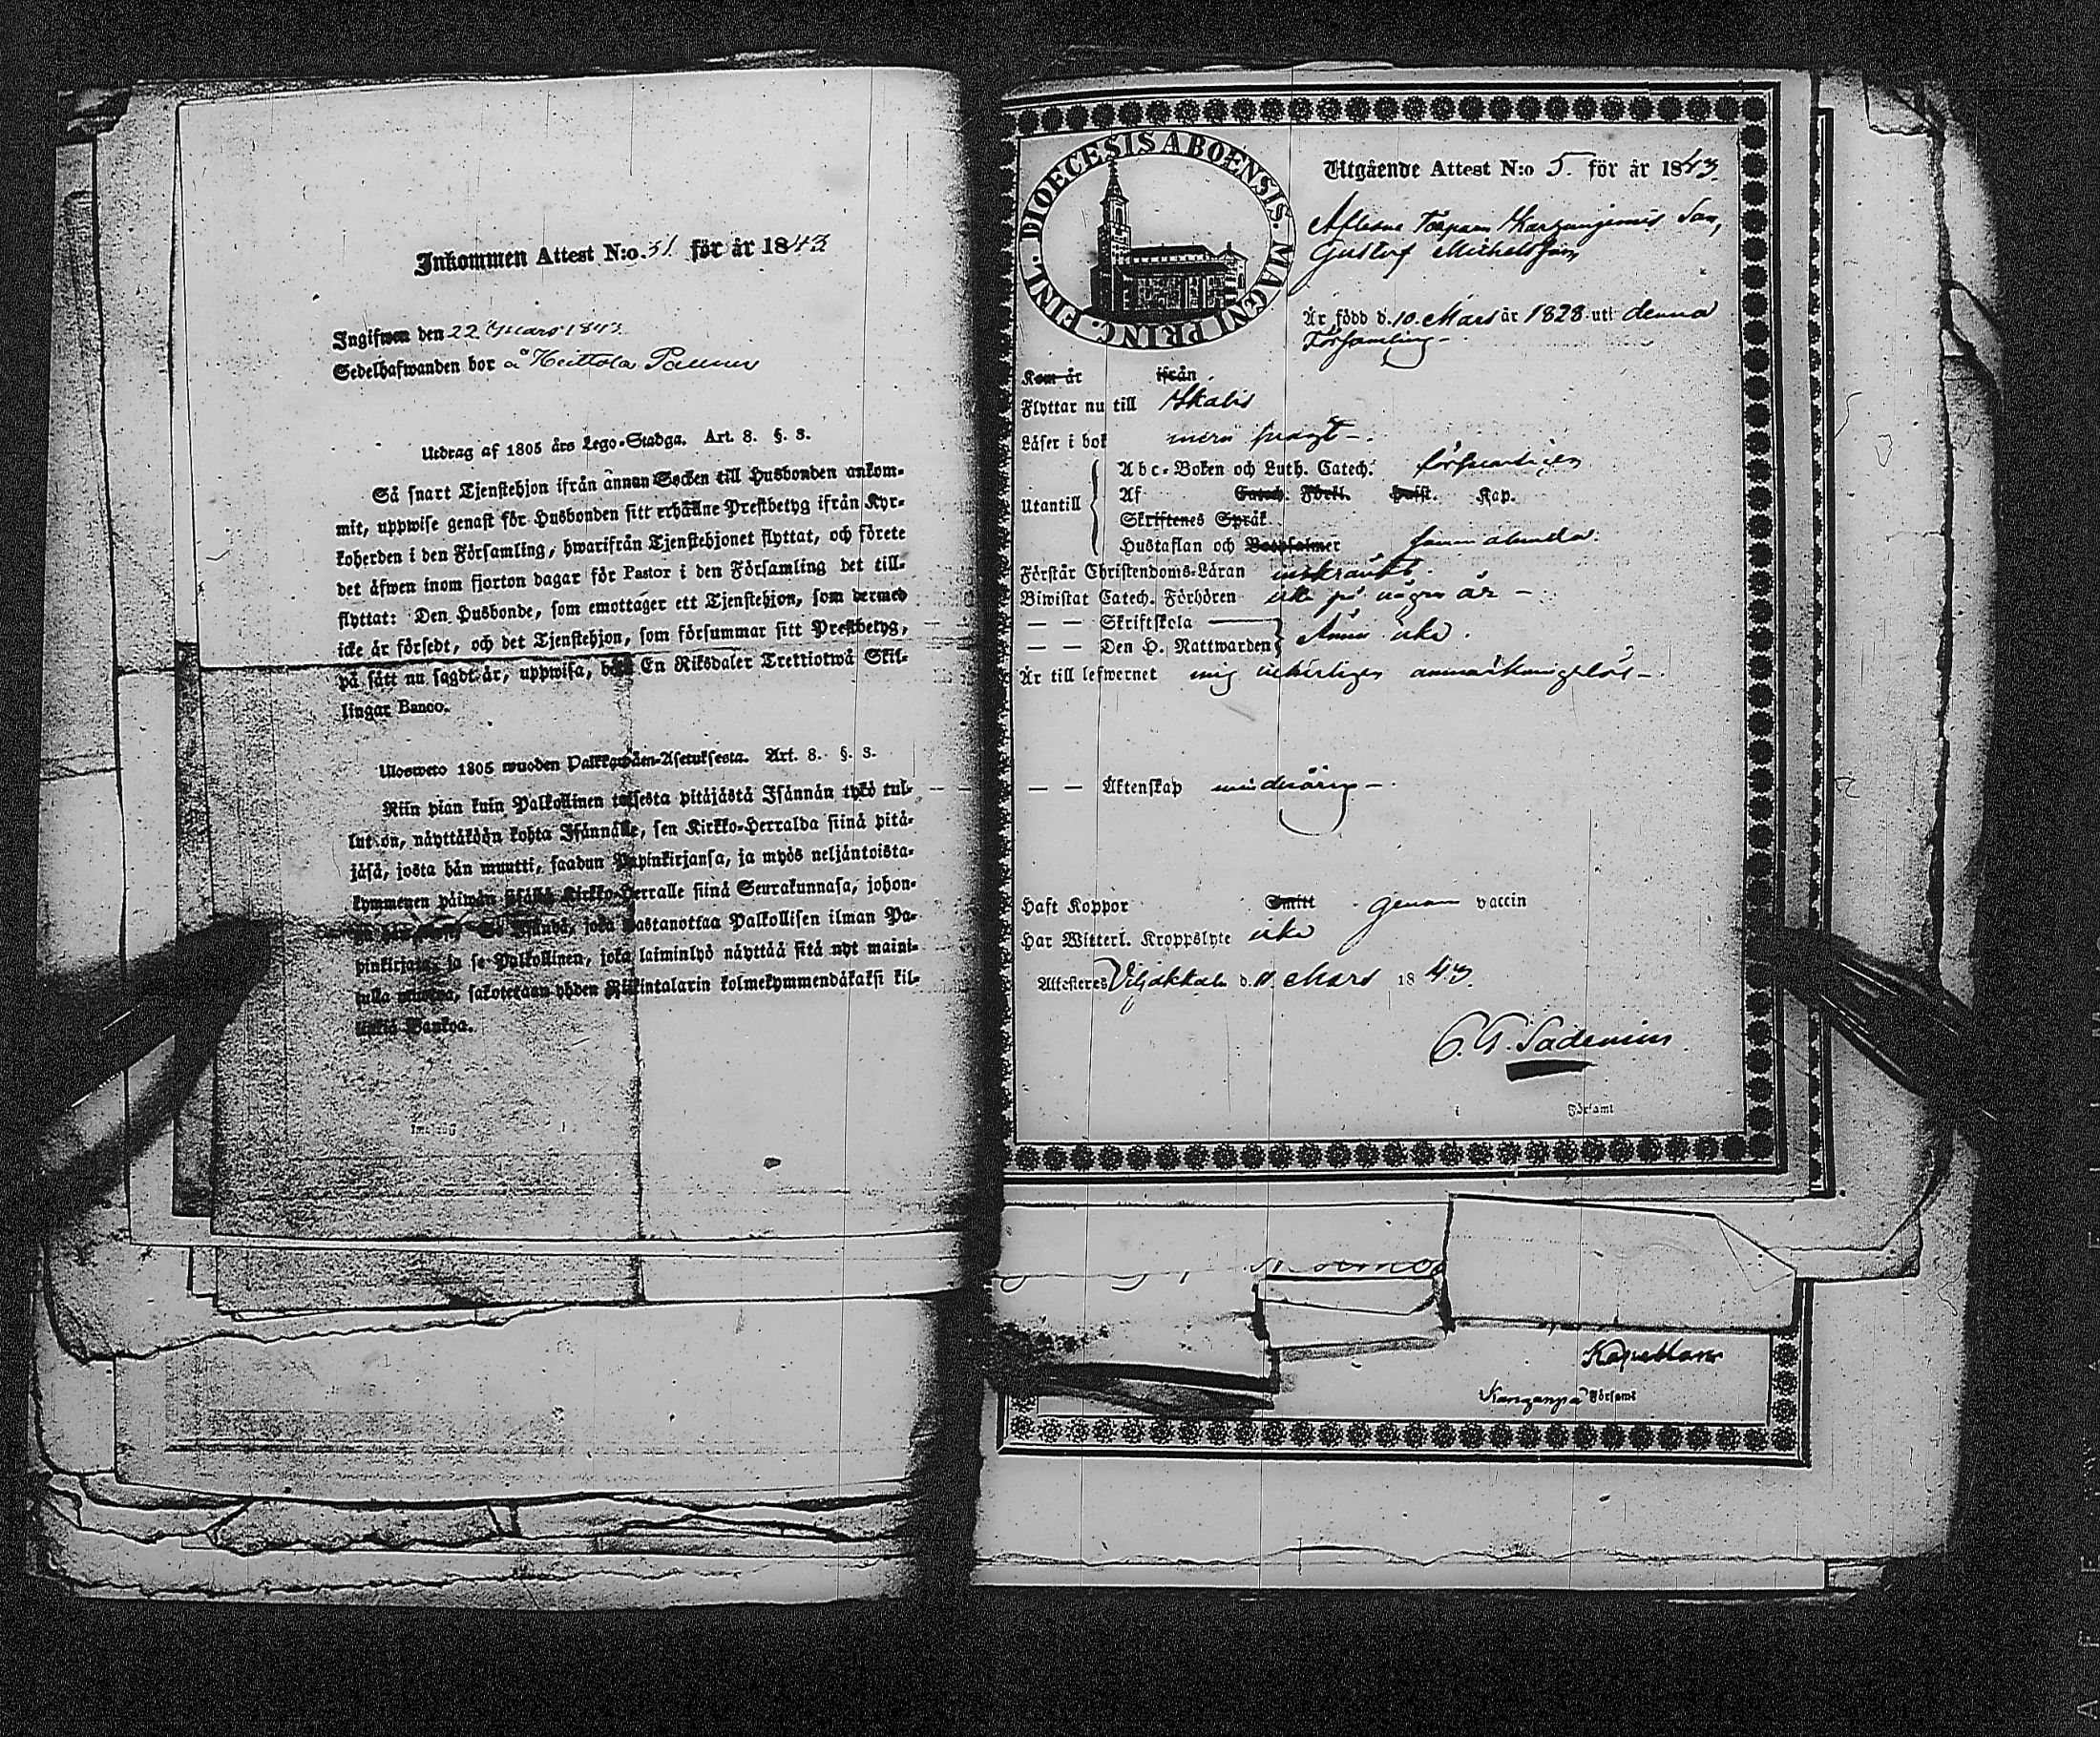 Inkommen Attest N:o 31. för år 1843
Ingifwen den 22 Mars 1843
Sedelhafwanden bor å Heittola
Utdrag af 1805 års Lego-Stadga. Art. 8. §. 3.
Så snart Tjenstehjon ifrån annan Socken till Husbonden ankom-
mit, uppwise genast för Husbonden sitt erhållne Prestbetyg ifrån Kyr-
koherden i den Församling, hwarifrån Tjenstehjonet flyttat, och förete
det äfwen inom fjorton dagar för Pastor i den Församling det till-
flyttat: Den Husbonde, som emottager ett Tjenstehjon, som dermed
icke är försedt, och det Tjenstehjon, som försummar sitt Prestbetyg,
på sätt nu sagdt är, uppwisa, En Riksdaler Trettiotwå Skil-
lingar Banco.
Ulosweto 1805 wuoden Palkkawäen-Asetuksesta. Art. 8. §. 3.
Niin pian kuin Palkollinen toisesta pitäjästä Isännän tykö tul-
lut on, näyttäköön kohta Isännälle, sen Kirkko-Herralda siinä pitä-
jäsä, josta hän muutti, saadun Papinkirjansa, ja myös neljäntoista-
kymmenen päiwän sisällä Kirkko-Herralle siinä Seurakunnasa, johon-
joka wastanottaa Palkollisen ilman Pa-
pinkirjata, ja se Palkollinen, joka laiminlyö näyttää sitä nyt maini-
tulla sakotetaan yhden Riikintalarin kolmekymmendäkaksi kil-
linkiä Bankoa.
DIOECESIS ABOENSIS. MAGNI PRINC. FINL.
Utgående Attest N:o 5. för år 1843.
Aflidne Torparn Son,
Gustaf Michelsson
Är född d. 10. Mars år 1828 uti denna
Församling -
Kom år ifrån
Flyttar nu till Ikalis
Läser i bok
Utantill
Abc-Boken och Luth. Catech. försvarligen
Af Catech. Förkl. Hufst. Kap.
Skriftenes Språk
Hustaflan och Botpsalmer sammaledes
Förstår Christendoms-Läran inskränkt.
Biwistat Catech. Förhören icke på några år -
— — Skriftskola
— — Den H. Nattwarden Ännu icke.
Är till lefwernet mig veterligen anmärkningslös -
— — Äktenskap minderårig -
Haft Koppor Smitt genom vaccin
Har Witterl. Kroppslyte icke
Attesteres Viljakkala d. 11 Mars 1843.
C. G. Sadenius
i Församl
Kapellan
Kangaspä Församl